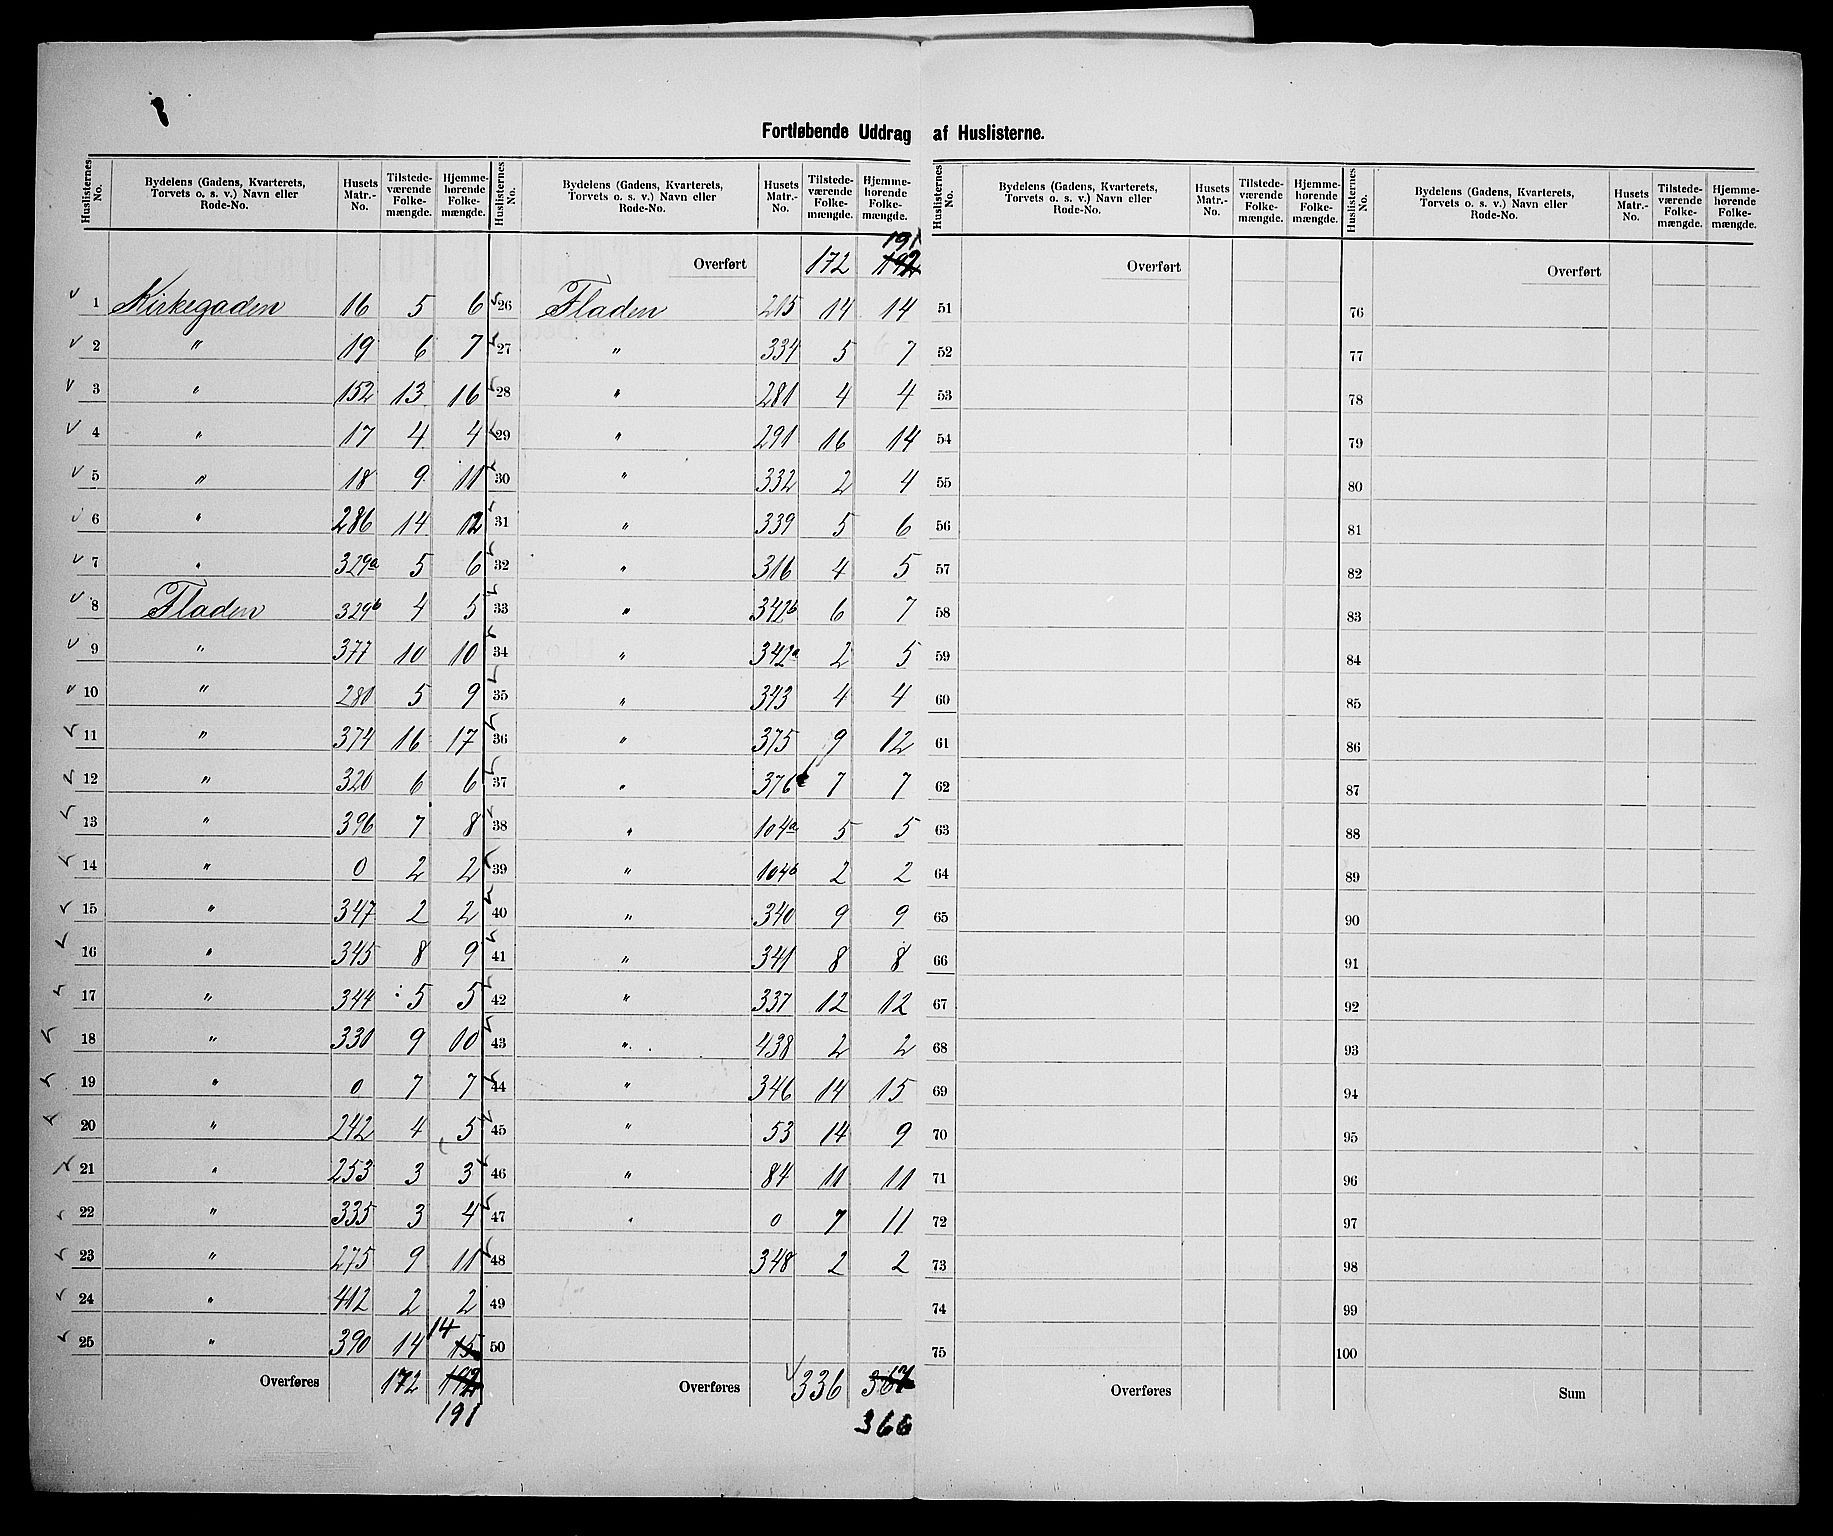 Fortløbende Uddrag af Huslisterne.
Huslisternes No. | Bydelens (Gadens, Kvarterets, Torvets o. s. v.) Navn eller Rode-No. | Husets Matr.-No. | Tilstede-værende Folke-mængde. | Hjemme-hørende Folke-mængde.
1 Kirkegaden 16 5 6
2 " 19 6 7
3 " 152 13 16
4 " 17 4 4
5 " 18 9 11
6 " 286 14 12
7 " 329a 5 6
8 Fladen 329b 4 5
9 " 377 10 10
10 " 280 5 9
11 " 374 16 17
12 " 320 6 6
13 " 396 7 8
14 " 0 2 2
15 " 347 2 2
16 " 345 8 9
17 " 344 5 5
18 " 330 9 10
19 " 0 7 7
20 " 242 4 5
21 " 253 3 3
22 " 335 3 4
23 " 275 9 11
24 " 412 2 2
25 " 390 14 15 14
Overføres 172 192
191
Huslisternes No. | Bydelens (Gadens, Kvarterets, Torvets o. s. v.) Navn eller Rode-No. | Husets Matr.-No. | Tilstede-værende Folke-mængde. | Hjemme-hørende Folke-mængde.
191
Overført 172 192
26 Fladen 215 14 14
27 " 334 5 7
28 " 281 4 4
29 " 291 16 14
30 " 332 2 4
31 " 339 5 6
32 " 316 4 5
33 " 342b 6 7
34 " 342a 2 5
35 " 343 4 4
36 " 375 9 12
37 " 376 7 7
38 " 104a 5 5
39 " 104b 2 2
40 " 340 9 9
41 " 341 8 8
42 " 337 12 12
43 " 438 2 2
44 " 346 14 15
45 " 53 14 9
46 " 84 11 11
47 " 0 7 11
48 348 2 2
49
50
Overføres 336 367
366
Huslisternes No. | Bydelens (Gadens, Kvarterets, Torvets o. s. v.) Navn eller Rode-No. | Husets Matr.-No. | Tilstede-værende Folke-mængde. | Hjemme-hørende Folke-mængde.
Overført
51
52
53
54
55
56
57
58
59
60
61
62
63
64
65
66
67
68
69
70
71
72
73
74
75
Overføres
Huslisternes No. | Bydelens (Gadens, Kvarterets, Torvets o. s. v.) Navn eller Rode-No. | Husets Matr.-No. | Tilstede-værende Folke-mængde. | Hjemme-hørende Folke-mængde.
Overført
76
77
78
79
80
81
82
83
84
85
86
87
88
89
90
91
92
93
94
95
96
97
98
99
100
Sum